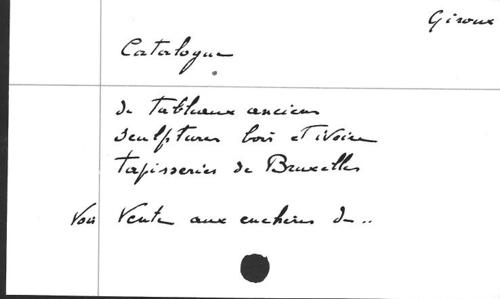 Giroux
Catalogue
de tableaux anciens
sculptures bois et ivoire
tapisseries de Bruxelles
Voir Vente aux enchères de ..